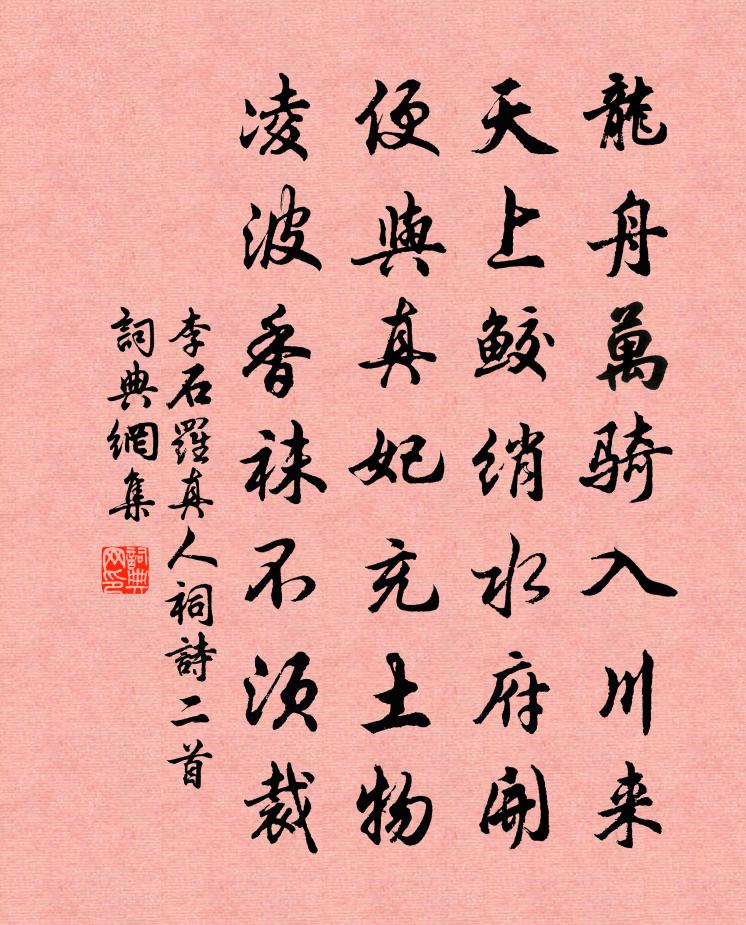 龍舟萬騎入川来
天上鮫綃水府開
便與真妃充土物
凌波香袜不須裁
李石羅真人祠詩二首
詞典網集
詞典网印